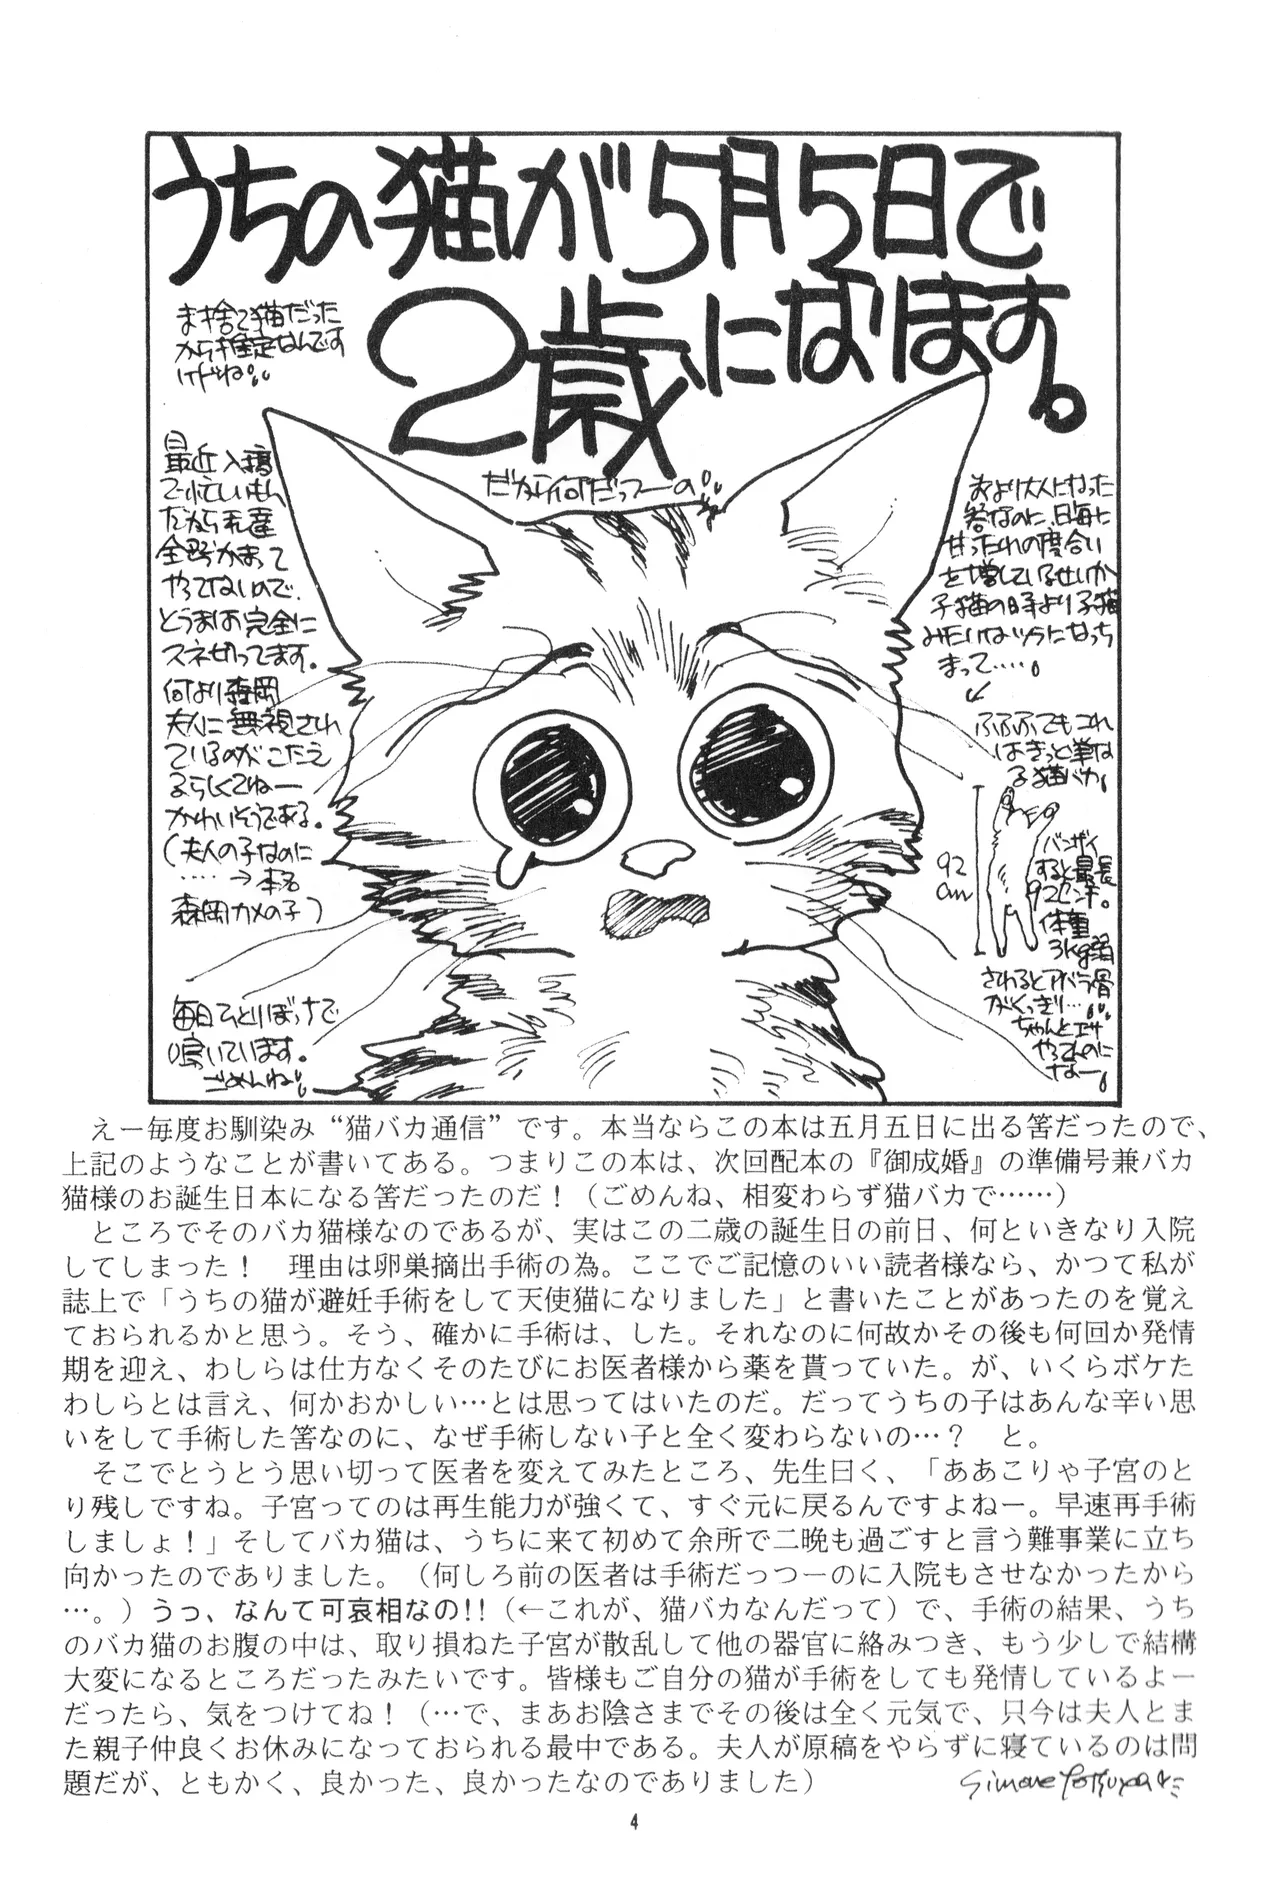 うちの猫が5月5日で
2歳になります。
ま、捨て猫だった
から推定なんです
けどね
だから何だってーの
最近入稿
で忙しいもん
だから私達
全然かまって
やってないので、
どうもお完全に
スネ切ってます。
何より森岡
夫人に無視され
ているのがこたえ
るらしくてねー
かわいそうである。
(夫人の子なのに
……→本名
森岡カメの子)
毎日ひとりぼっちで
鳴いています。
ごめんね
より大人になった
筈なのに、日毎に
甘ったれの度合い
を増しているせいか
子猫の時より子猫
みたいなツラになっち
まって……。
ふふふでもこれ
はきっと単な
る猫バカ
92
cm
バンザイ
すると最長
92センチ。
体重
3kg弱
さわるとアバラ骨
がくっきり…
ちゃんとエサ
やってんのに
なー
えー毎度お馴染み“猫バカ通信”です。本当ならこの本は五月五日に出る筈だったので、
上記のようなことが書いてある。つまりこの本は、次回配本の『御成婚』の準備号兼バカ
猫様のお誕生日本になる筈だったのだ!(ごめんね、相変わらず猫バカで……)
ところでそのバカ猫様なのであるが、実はこの二歳の誕生日の前日、何といきなり入院
してしまった! 理由は卵巣摘出手術の為。ここでご記憶のいい読者様なら、かつて私が
誌上で「うちの猫が避妊手術をして天使猫になりました」と書いたことがあったのを覚え
ておられるかと思う。そう、確かに手術は、した。それなのに何故かその後も何回か発情
期を迎え、わしらは仕方なくそのたびにお医者様から薬を貰っていた。が、いくらボケた
わしらとは言え、何かおかしい…とは思ってはいたのだ。だってうちの子はあんな辛い思
いをして手術した筈なのに、なぜ手術しない子と全く変わらないの…? と。
そこでとうとう思い切って医者を変えてみたところ、先生曰く、「ああこりゃ子宮のと
り残しですね。子宮ってのは再生能力が強くて、すぐ元に戻るんですよねー。早速再手術
しましょ!」そしてバカ猫は、うちに来て初めて余所で二晩も過ごすと言う難事業に立ち
向かったのでありました。(何しろ前の医者は手術だっつーのに入院もさせなかったから
…。)うっ、なんて可哀相なの!!(←これが、猫バカなんだって)で、手術の結果、うち
のバカ猫のお腹の中は、取り損ねた子宮が散乱して他の器官に絡みつき、もう少しで結構
大変になるところだったみたいです。皆様もご自分の猫が手術をしても発情しているよー
だったら、気をつけてね!(…で、まあお陰さまでその後は全く元気で、只今は夫人とま
た親子仲良くお休みになっておられる最中である。夫人が原稿をやらずに寝ているのは問
題だが、ともかく、良かった、良かったなのでありました)
Simone Yotsuya
4